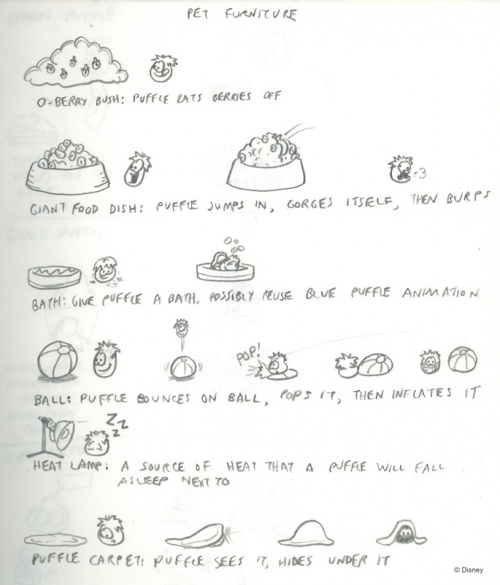 PET FURNITURE
O-BERRY BUSH: PUFFLE EATS BERRIES OFF
GIANT FOOD DISH: PUFFLE JUMPS IN, GORGES ITSELF, THEN BURPS
BATH: GIVE PUFFLE A BATH. POSSIBLY REUSE BLUE PUFFLE ANIMATION
POP!
BALL: PUFFLE BOUNCES ON BALL, POPS IT, THEN INFLATES IT
Z Z Z
HEAT LAMP: A SOURCE OF HEAT THAT A PUFFLE WILL FALL
ASLEEP NEXT TO
PUFFLE CARPET: PUFFLE SEES IT, HIDES UNDER IT
© Disney